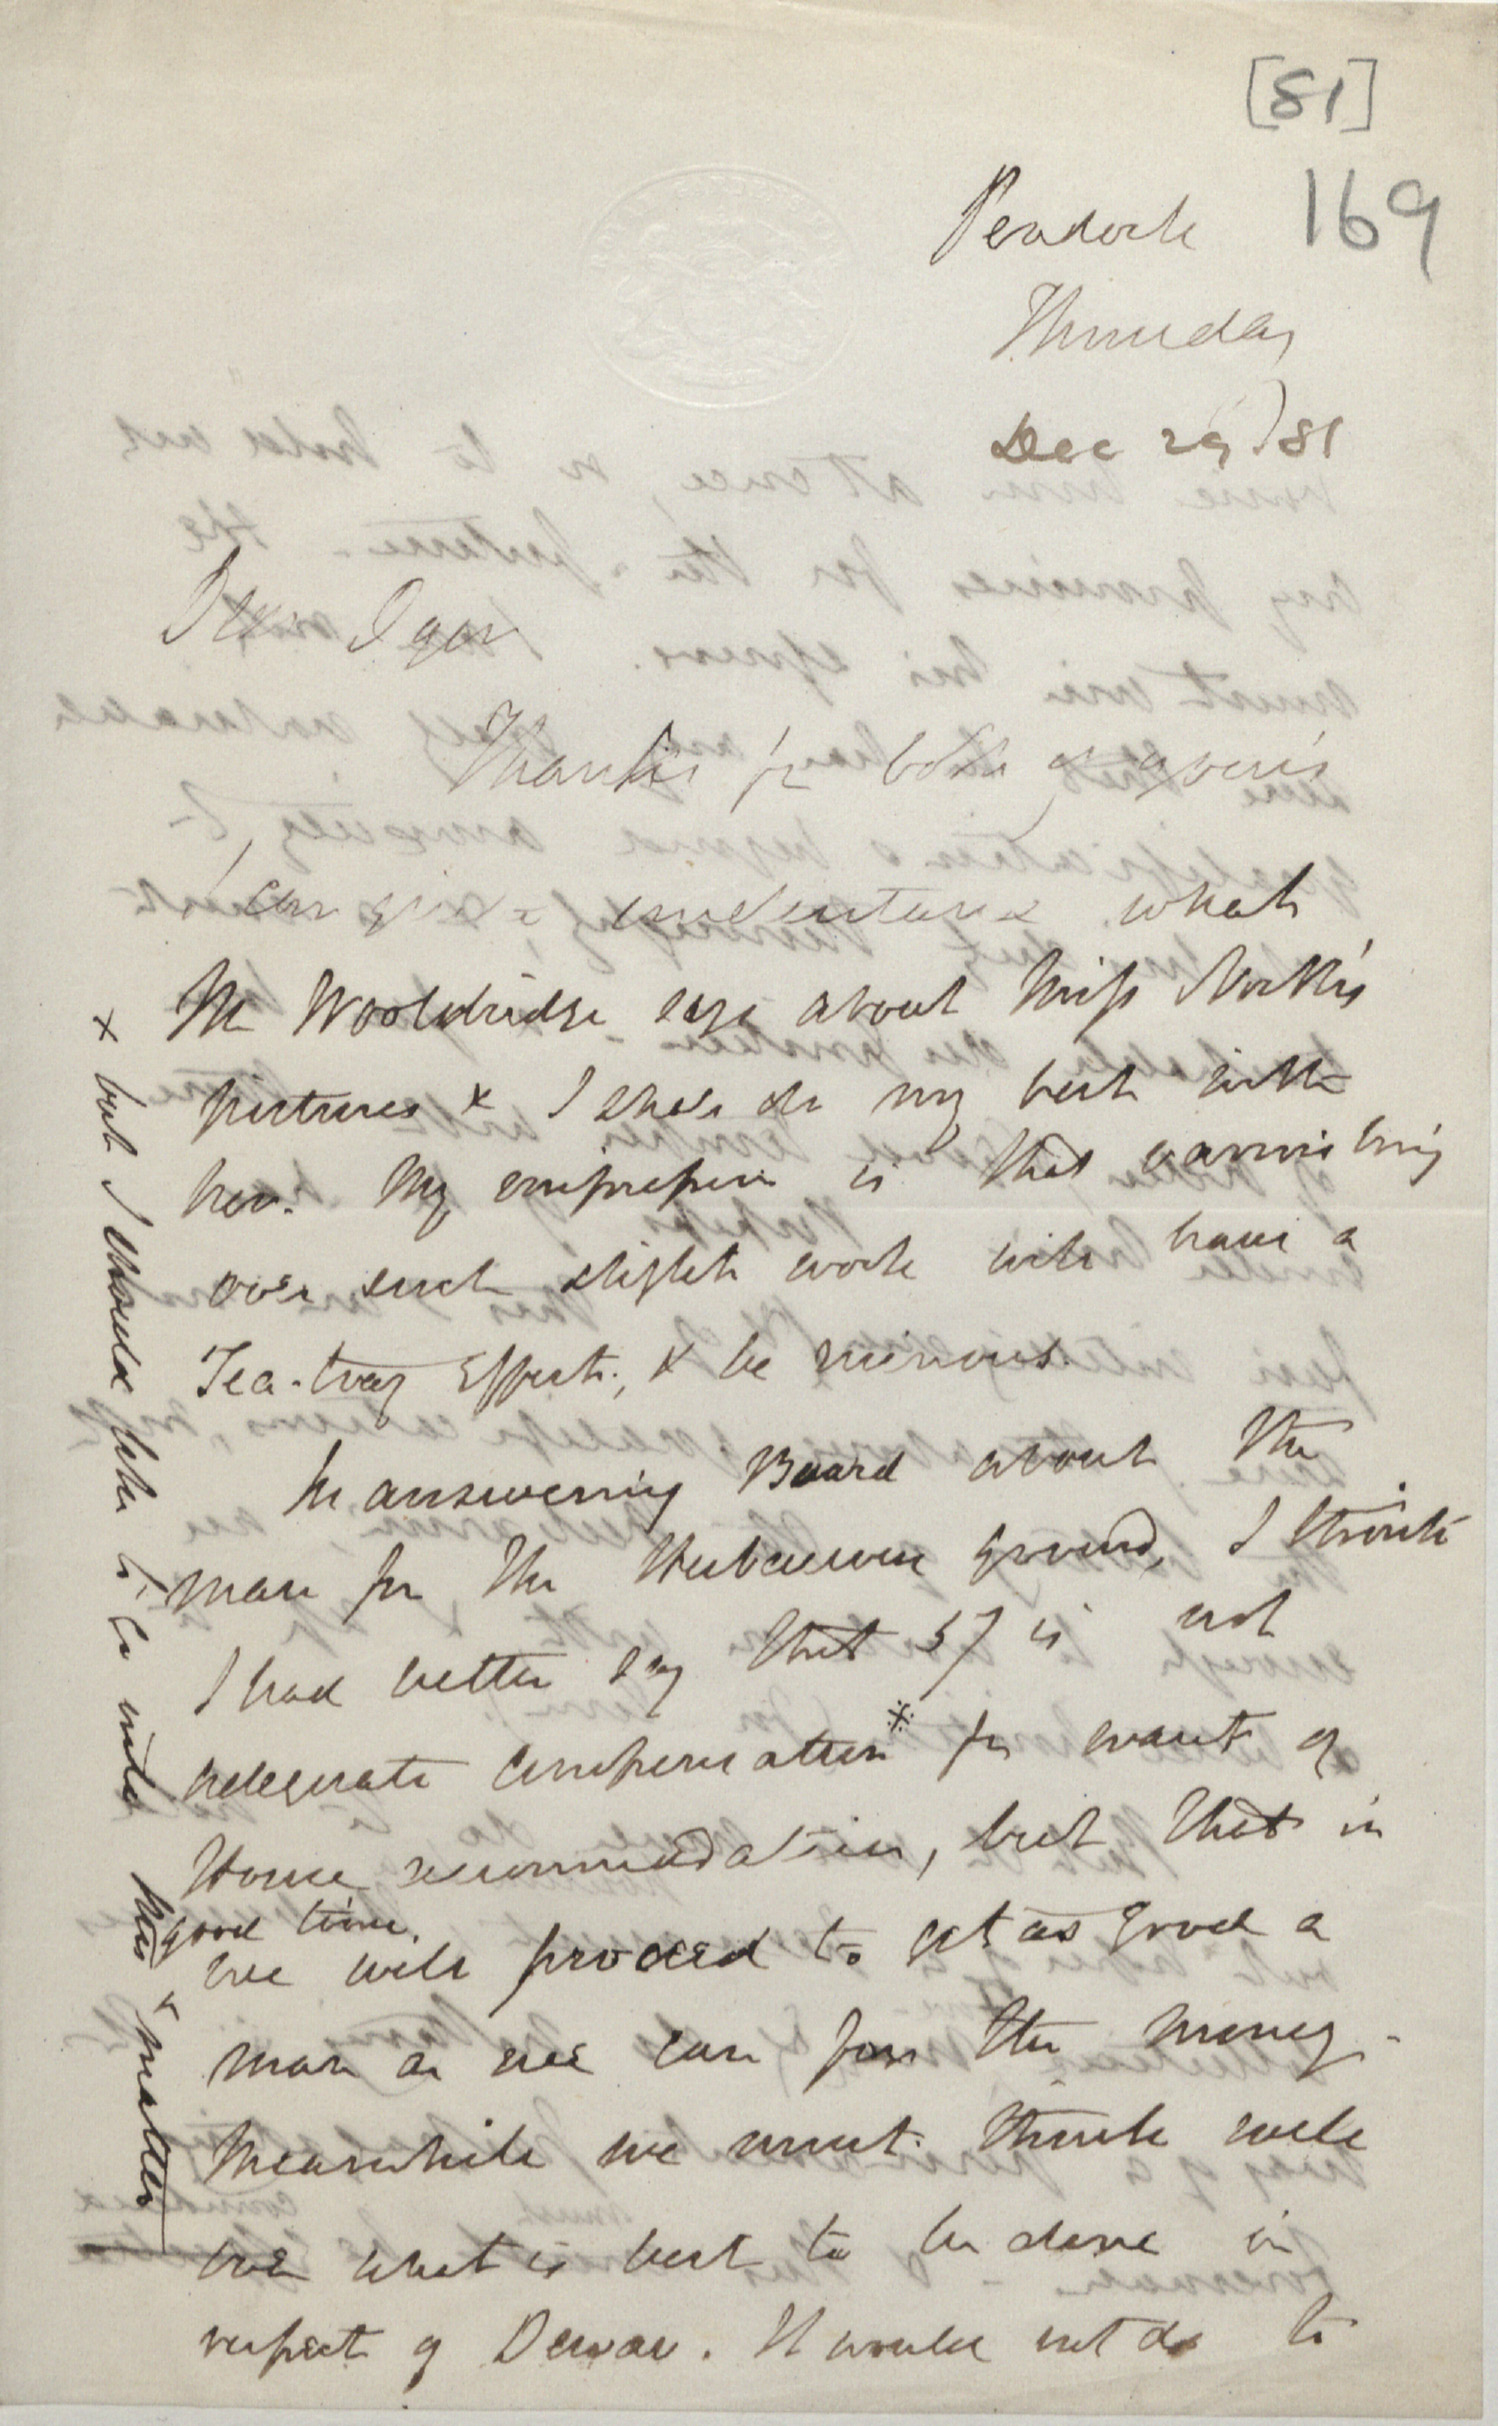 [81]
169
Pendock
Thursday
Dec 29/81
Dear Dyer
Thanks for both of yours
I can quite understand what
Mr Wooldridge says about Miss North's
pictures x I shall do my best with
her. My impression is that varnishing
over such slight work will have a
Tea-tray effect, & be ruinous.
In answering Board about the
man for the Herbaceous ground, I think
I had better say that 5/ is not
adequate compensation* for want of
House accommodation, but that in
good time.
we will proceed to get as good a
man as we can for the money -
Meanwhile we must think well
over what is best to be done in
respect of Dewar. It would not do to
x but I should like to go into this matter